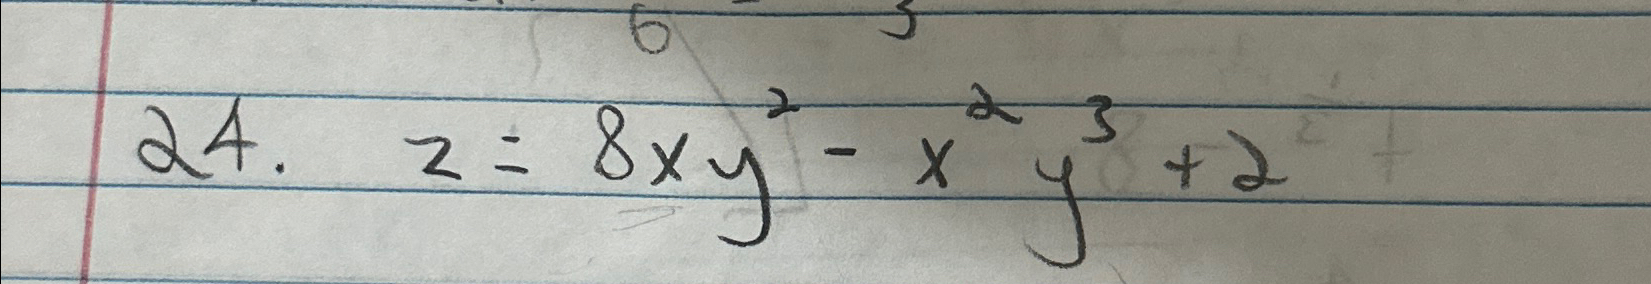 6 3
24. z = 8xy² - x²y³ + 2